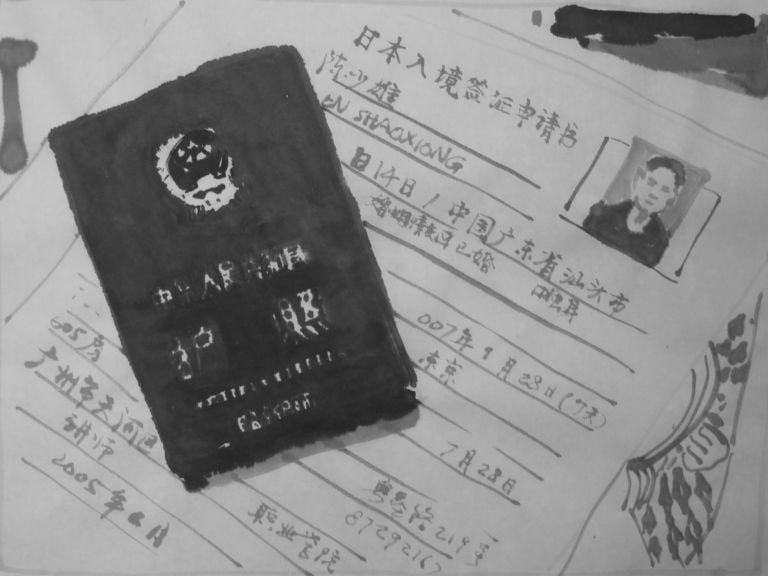 日本入境签证申请书
陈少雄
EN SHAOXIONG
日14日/中国广东省汕头市
婚姻 已婚
007年9月28日(7天)
东京
605房
广州市天河区
讲师
7月28日
2005年6月
219号
职业学院
87292167
中华人民共和国
护照